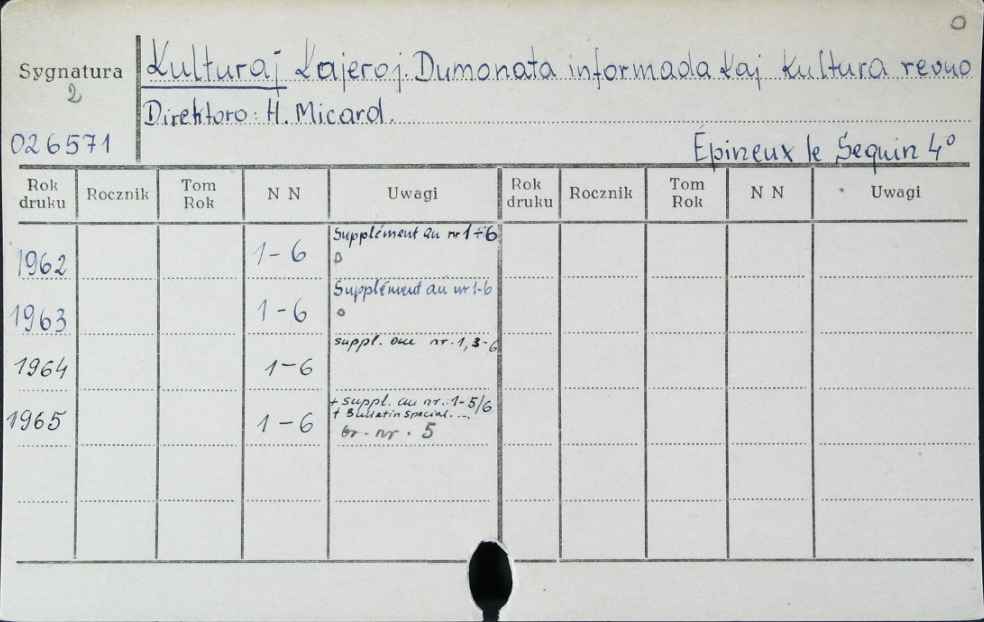 O
Sygnatura
2
026571
Kulturaj Kajeroj. Dumonata informada kaj kultura revuo
Direktoro: H. Micard.
Épineux le Seguin 4°
Rok druku Rocznik Tom Rok N N Uwagi Rok druku Rocznik Tom Rok N N Uwagi
1962 1-6 Supplément au nr 1÷6
1963 1-6 Supplément au nr 1-6
1964 1-6 suppl. au nr. 1, 3-6
1965 1-6 + suppl. au nr. 1-5/6
+ Bulletin special. ...
br. nr. 5